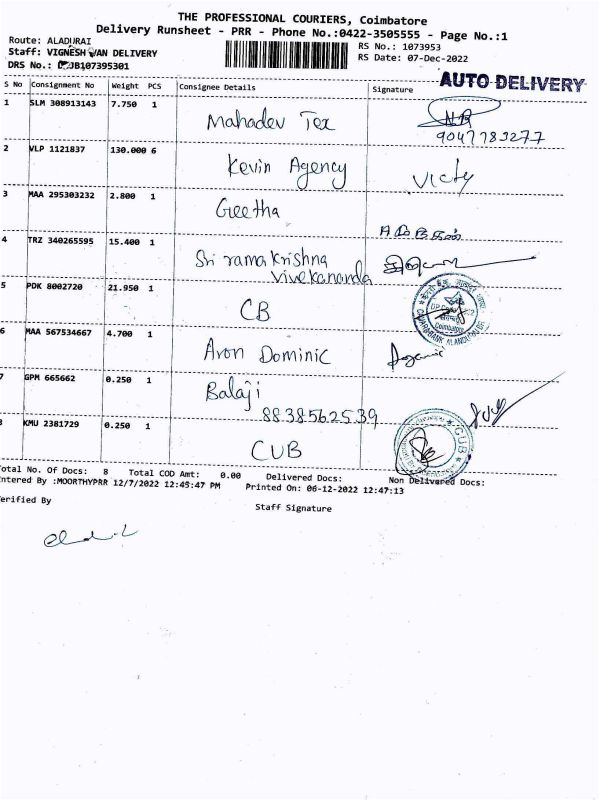 THE PROFESSIONAL COURIERS, Coimbatore
Delivery Runsheet - PRR - Phone No.:0422-3505555 - Page No.:1
Route: ALADURAI
RS No.: 1073953
Staff: VIGNESH VAN DELIVERY
RS Date: 07-Dec-2022
DRS No.: JB107395301
AUTO DELIVERY
S No Consignment No Weight PCS Consignee Details Signature
1 SLM 308913143 7.750 1 Mahadev Tex
9047783277
2 VLP 1121837 130.000 6 Kevin Agency Victy
3 MAA 295303232 2.800 1 Geetha
4 TRZ 340265595 15.400 1 Sri ramakrishna
vivekananda
5 PDK 8002720 21.950 1 CB
Coimbatore
6 MAA 567534667 4.700 1 Aron Dominic
7 GPM 665662 0.250 1 Balaji
8838562539
KMU 2381729 0.250 1 CUB
CUB
otal No. Of Docs: 8 Total COD Amt: 0.00 Delivered Docs: Non Delivered Docs:
ntered By :MOORTHYPRR 12/7/2022 12:45:47 PM Printed On: 06-12-2022 12:47:13
erified By
Staff Signature